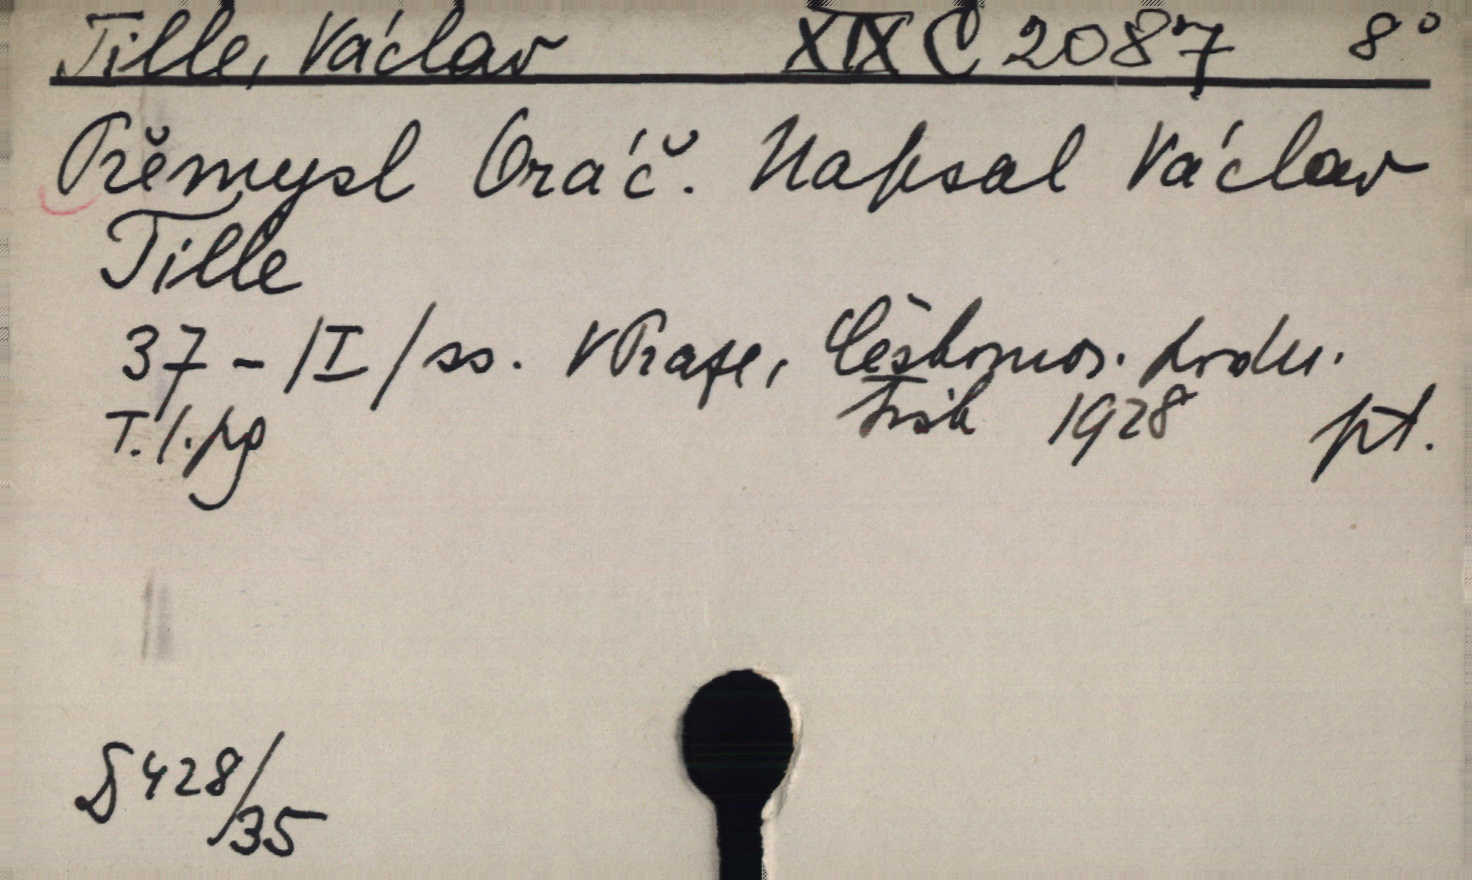 Tille, Václav XIX C 2087 8°
Přemysl Oráč. Napsal Václav
Tille
37 - /I/ ss. V Praze, Českomor. podn.
T. 1. pg tisk 1928 pt.
§ 428/35